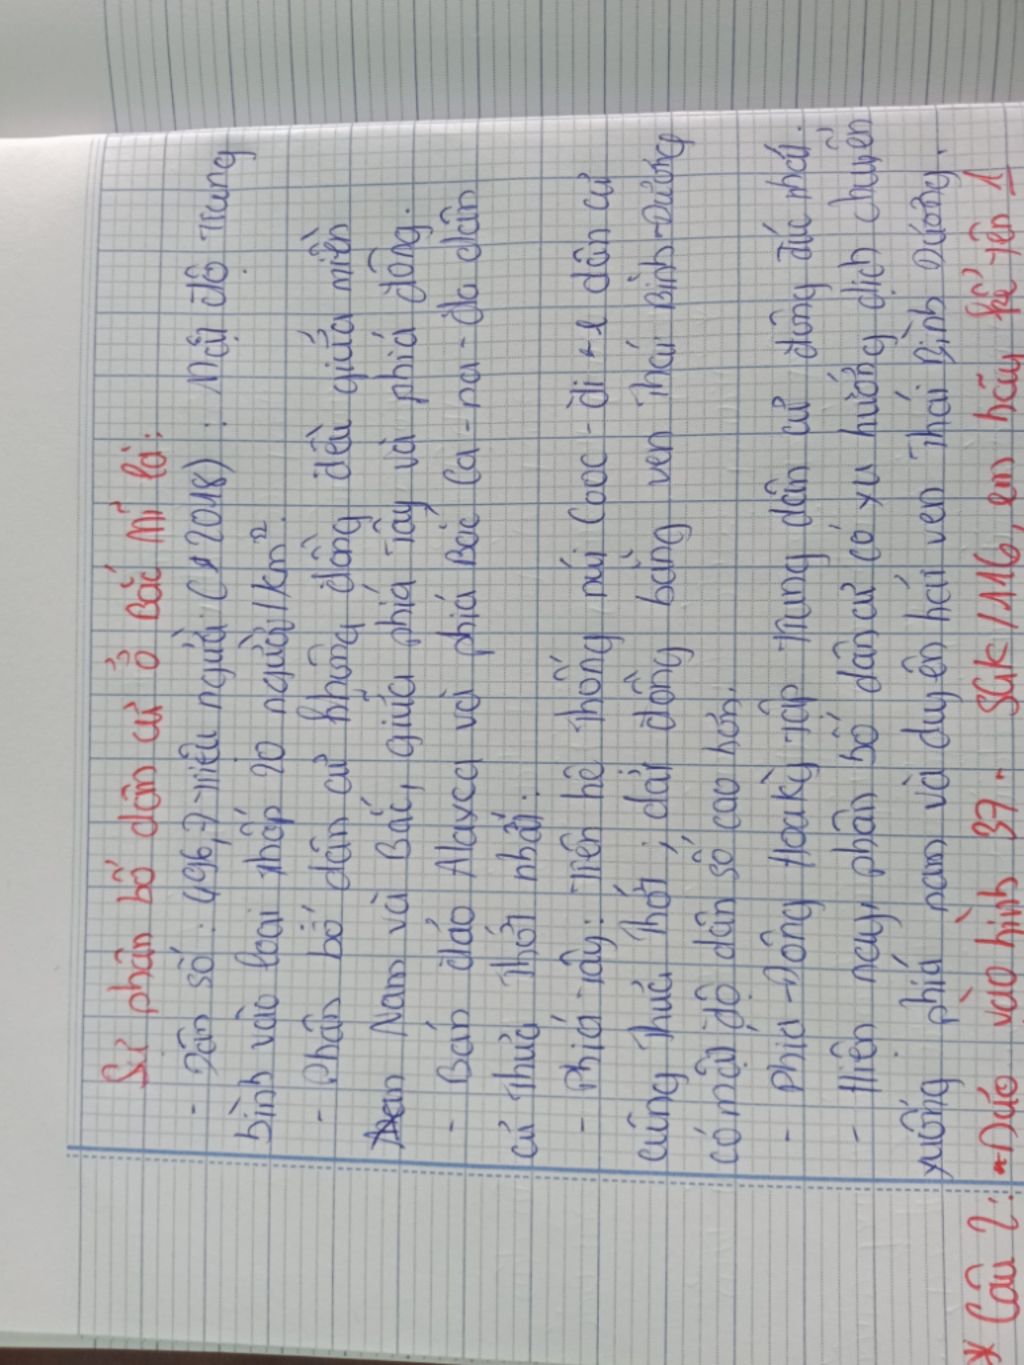 Sự phân bố dân cư ở Bắc Mĩ là:
- Dân số: 496,7 triệu người (2018): Mật độ trung
bình vào loại thấp 20 người/km².
- Phân bố dân cư không đồng đều giữa miền
Nam và Bắc, giữa phía Tây và phía đông.
- Bán đảo Alaxca và phía Bắc Ca-na-đa dân
cư thưa thớt nhất.
- Phía Tây: Trên hệ thống núi Cooc-đi-e dân cư
cũng thưa thớt; dải đồng bằng ven Thái Bình-Dương
có mật độ dân số cao hơn.
- Phía-Đông Hoa Kỳ tập trung dân cư đông đúc nhất.
- Hiện nay, phân bố dân cư có xu hướng dịch chuyển
xuống phía nam và duyên hải ven Thái Bình Dương.
* Câu 2: "Dựa vào hình 37. SGK/116, em hãy kể tên 1